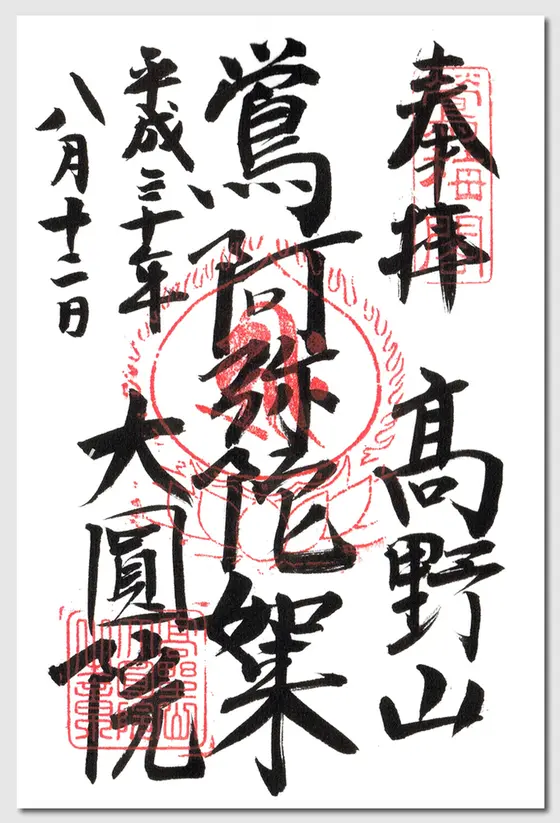 奉拝
高野山
鴬阿弥陀如来
平成三十年
八月十二日
大圓院